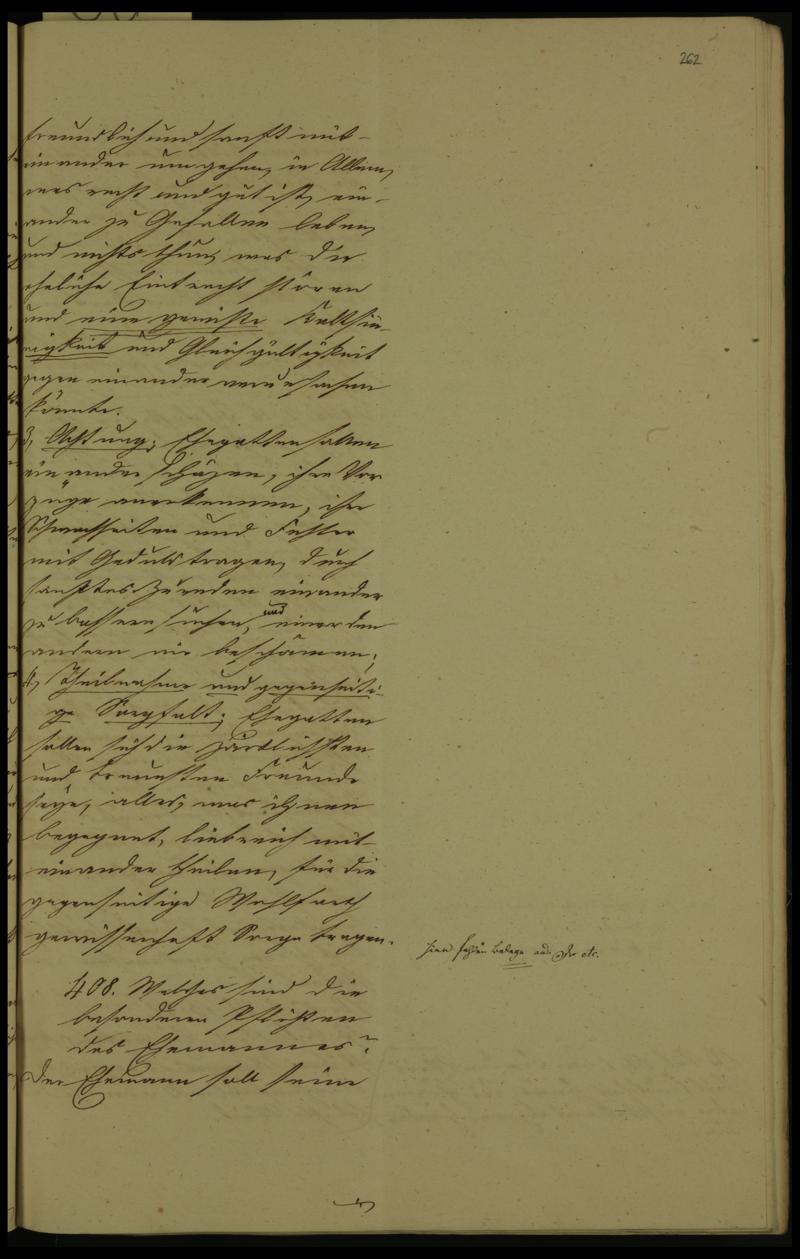 262
freundlich und sanft mit-
einander umgehen, in Allem,
was recht und gut ist, ein-
ander zu Gefallen leben,
und nichts thun, was die
eheliche Eintracht stören
und eine gewisse Kaltsin-
nigkeit und Gleichgültigkeit
gegen einander verursachen
könnte.
3, Achtung; Ehegatten sollen
einander schäzen, ihre Vor-
züge anerkennen, ihre
Schwachheiten und Fehler
mit Geduld tragen, durch
sanftes Zureden einander
zu bessern suchen, und einer den
andern nie beschämen;
4, Theilnahme und gegenseiti-
ge Sorgfalt; Ehegatten
sollen sich die zärtlichsten
und treuesten Freunde
seyn, alles, was ihnen
begegnet, liebreich mit-
einander theilen, für die
gegenseitige Wohlfarth
gewissenhaft Sorge tragen.
hier fehlen Belege aus der etc.
408. Welches sind die
besonderen Pflichten
des Ehemannes?
Der Ehemann soll seine